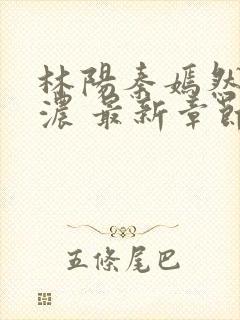 林陽秦嫣然
濃 最新章節
五條尾巴